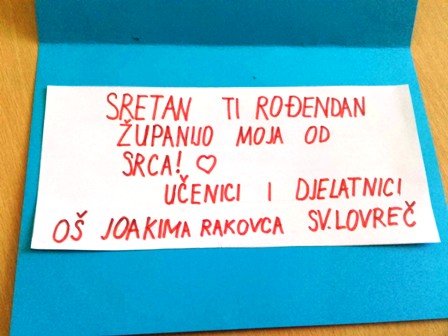 SRETAN TI ROĐENDAN
ŽUPANIJO MOJA OD
SRCA! ♡
UČENICI I DJELATNICI
OŠ JOAKIMA RAKOVCA SV.LOVREČ